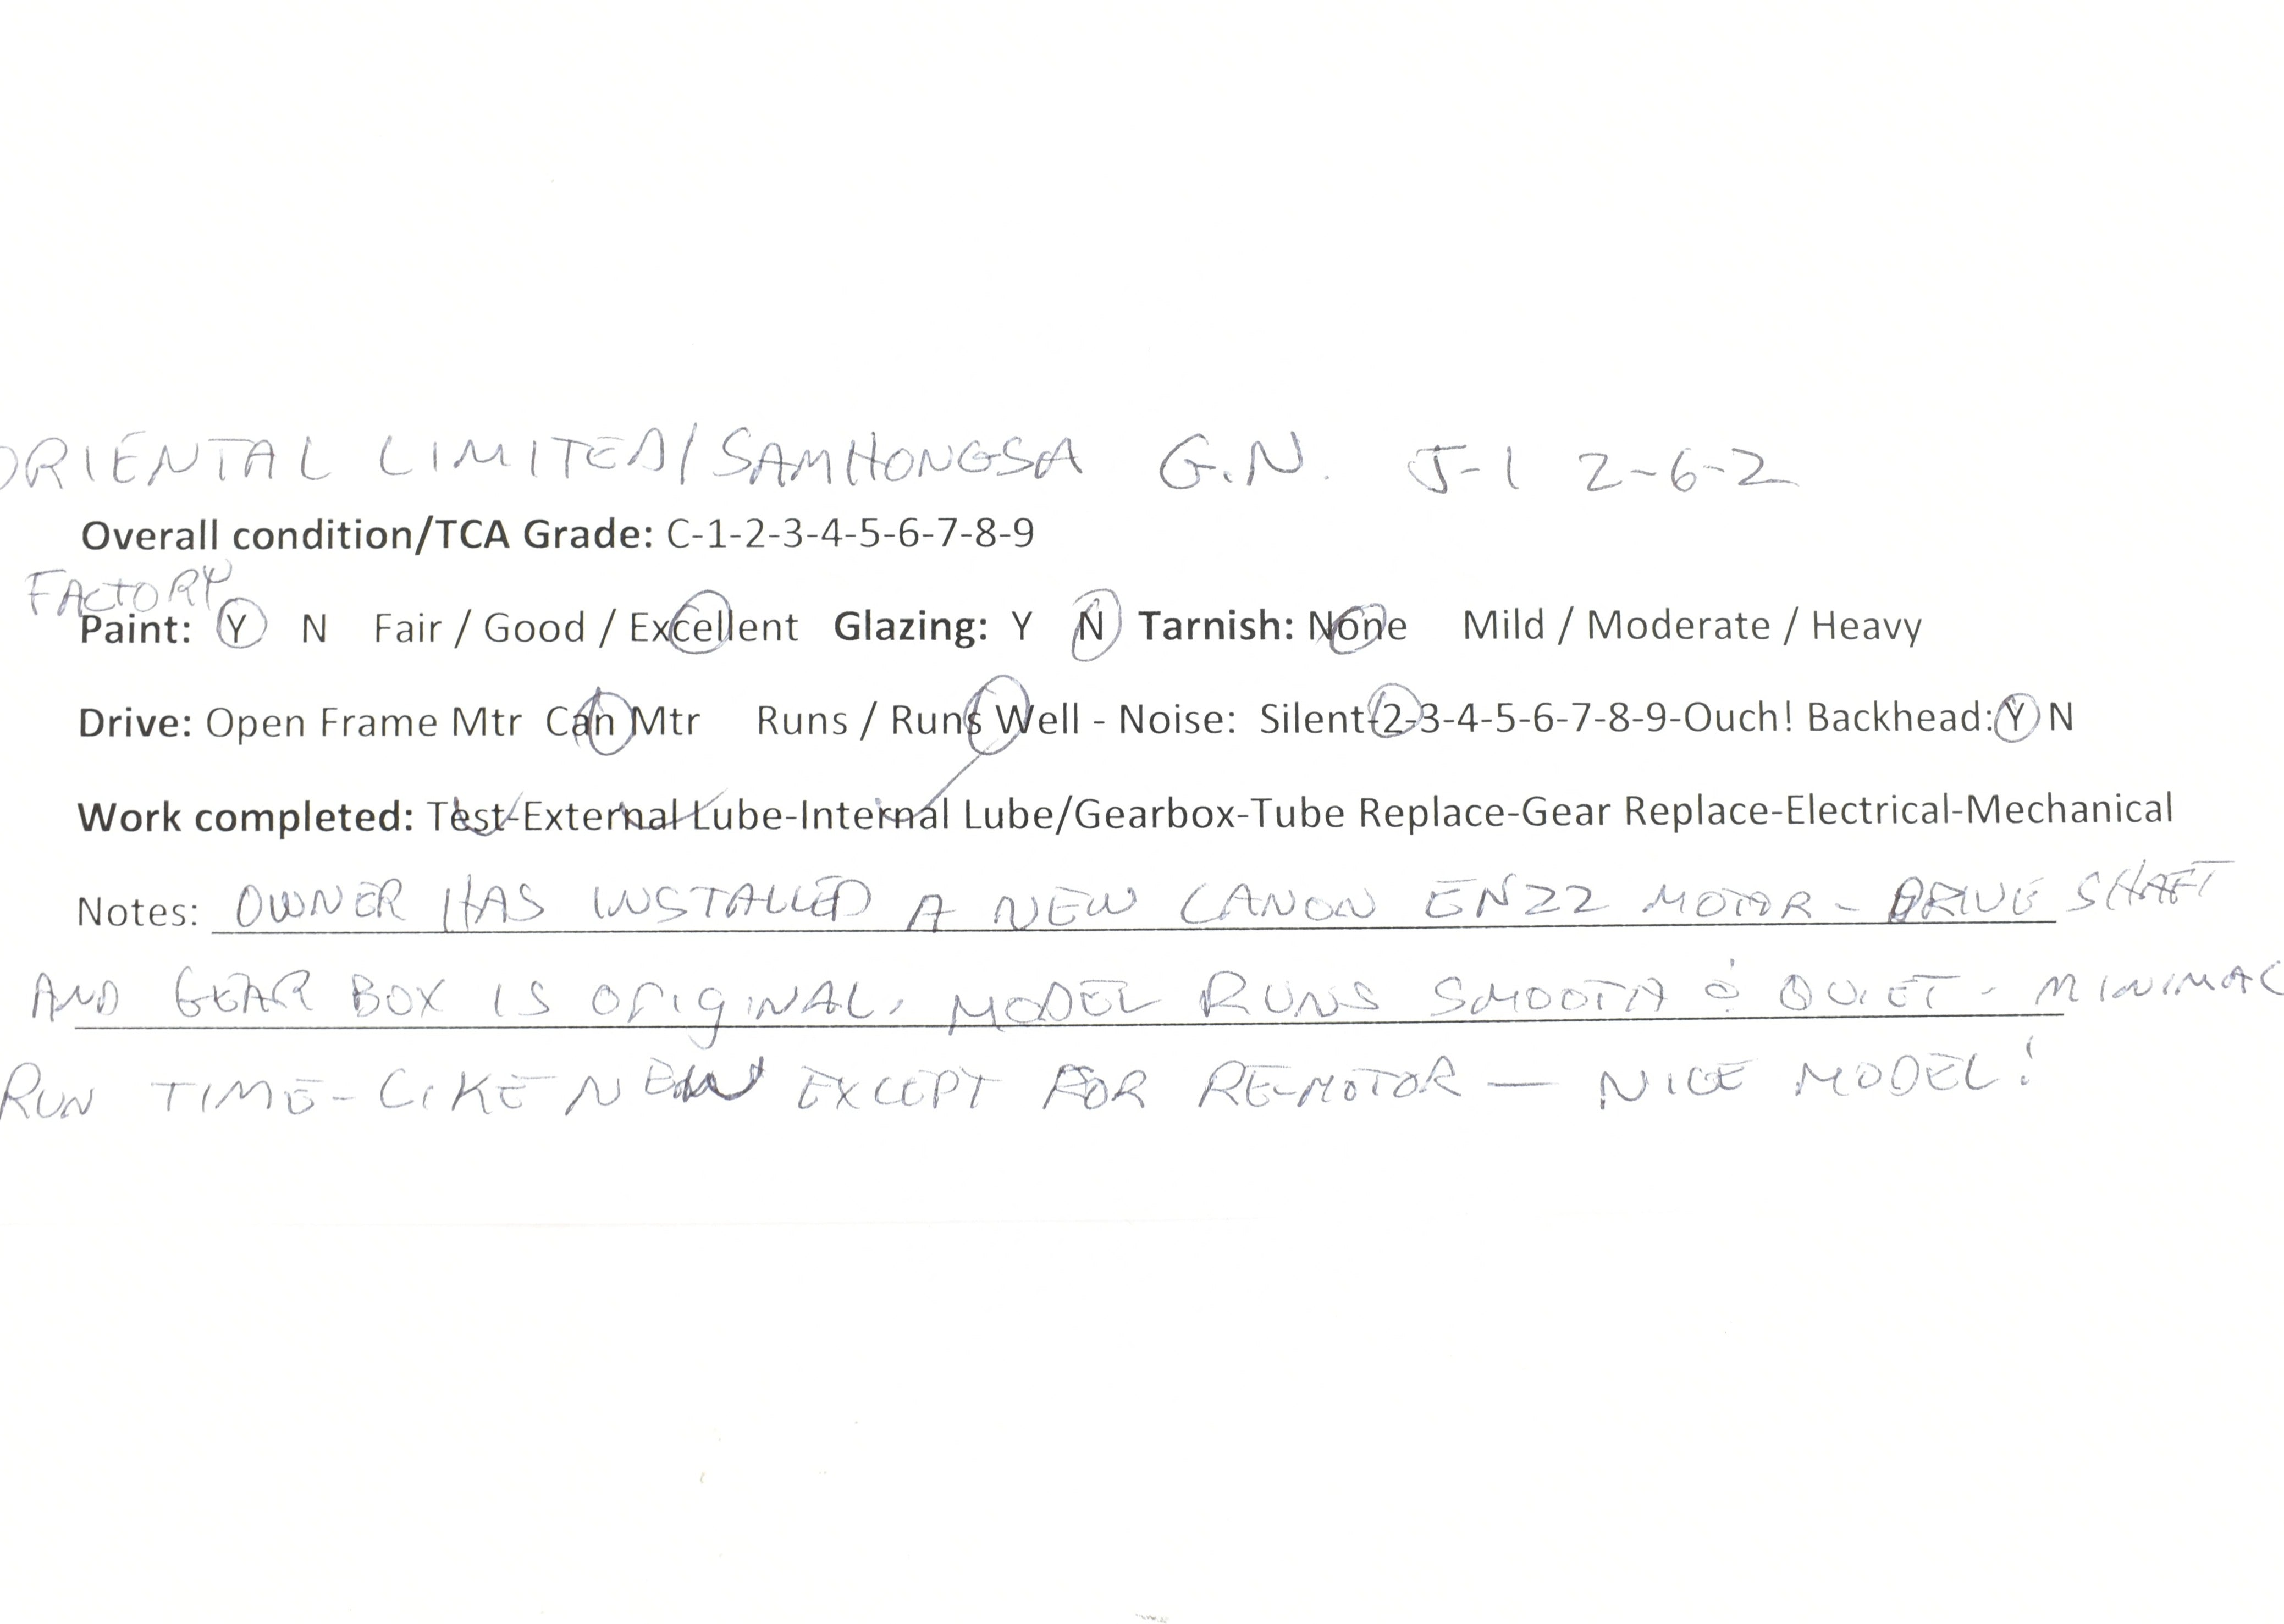 ORIENTAL LIMITED/SAMHONGSA G.N. J-1 2-6-2
Overall condition/TCA Grade: C-1-2-3-4-5-6-7-8-9
FACTORY
Paint: Y N Fair / Good / Excellent Glazing: Y N Tarnish: None Mild / Moderate / Heavy
Drive: Open Frame Mtr Can Mtr Runs / Runs Well - Noise: Silent-2-3-4-5-6-7-8-9-Ouch! Backhead: Y N
Work completed: Test-External Lube-Internal Lube/Gearbox-Tube Replace-Gear Replace-Electrical-Mechanical
Notes: OWNER HAS INSTALLED A NEW CANON EN22 MOTOR - DRIVE SHAFT
AND GEAR BOX IS ORIGINAL, MODEL RUNS SMOOTH & QUIET - MINIMAL
RUN TIME-LIKE NEW EXCEPT FOR RE-MOTOR — NICE MODEL!